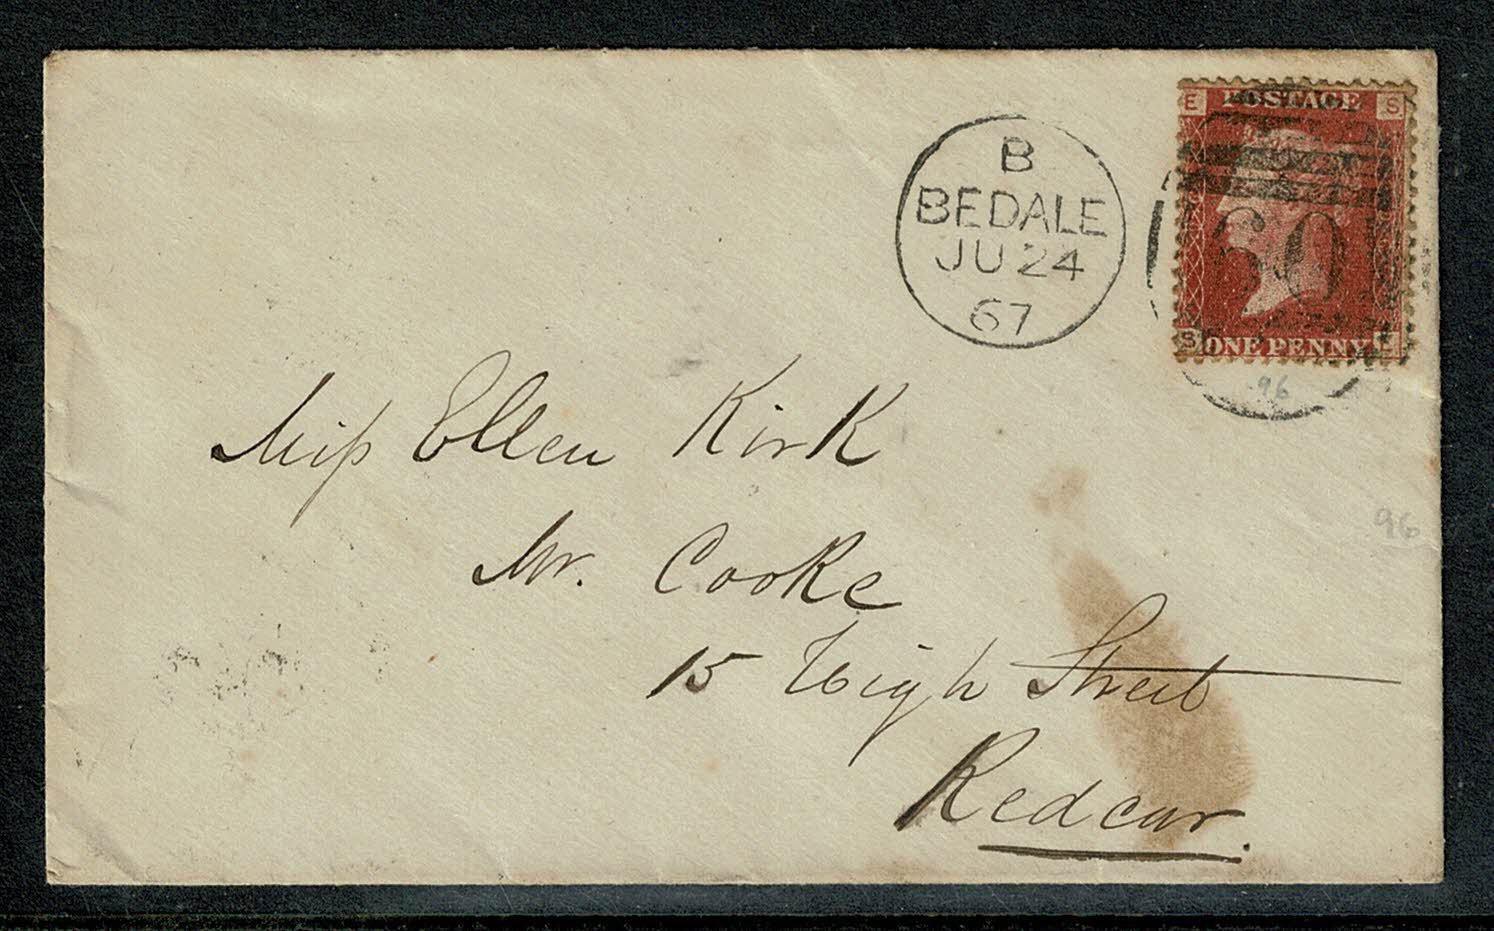 B
BEDALE
JU 24
67
E POSTAGE S
601
S ONE PENNY E
96
96
Miss Ellen Kirk
Mr. Cooke
15 High Street
Redcar.